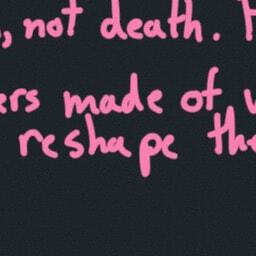 , not death.
made of
reshape